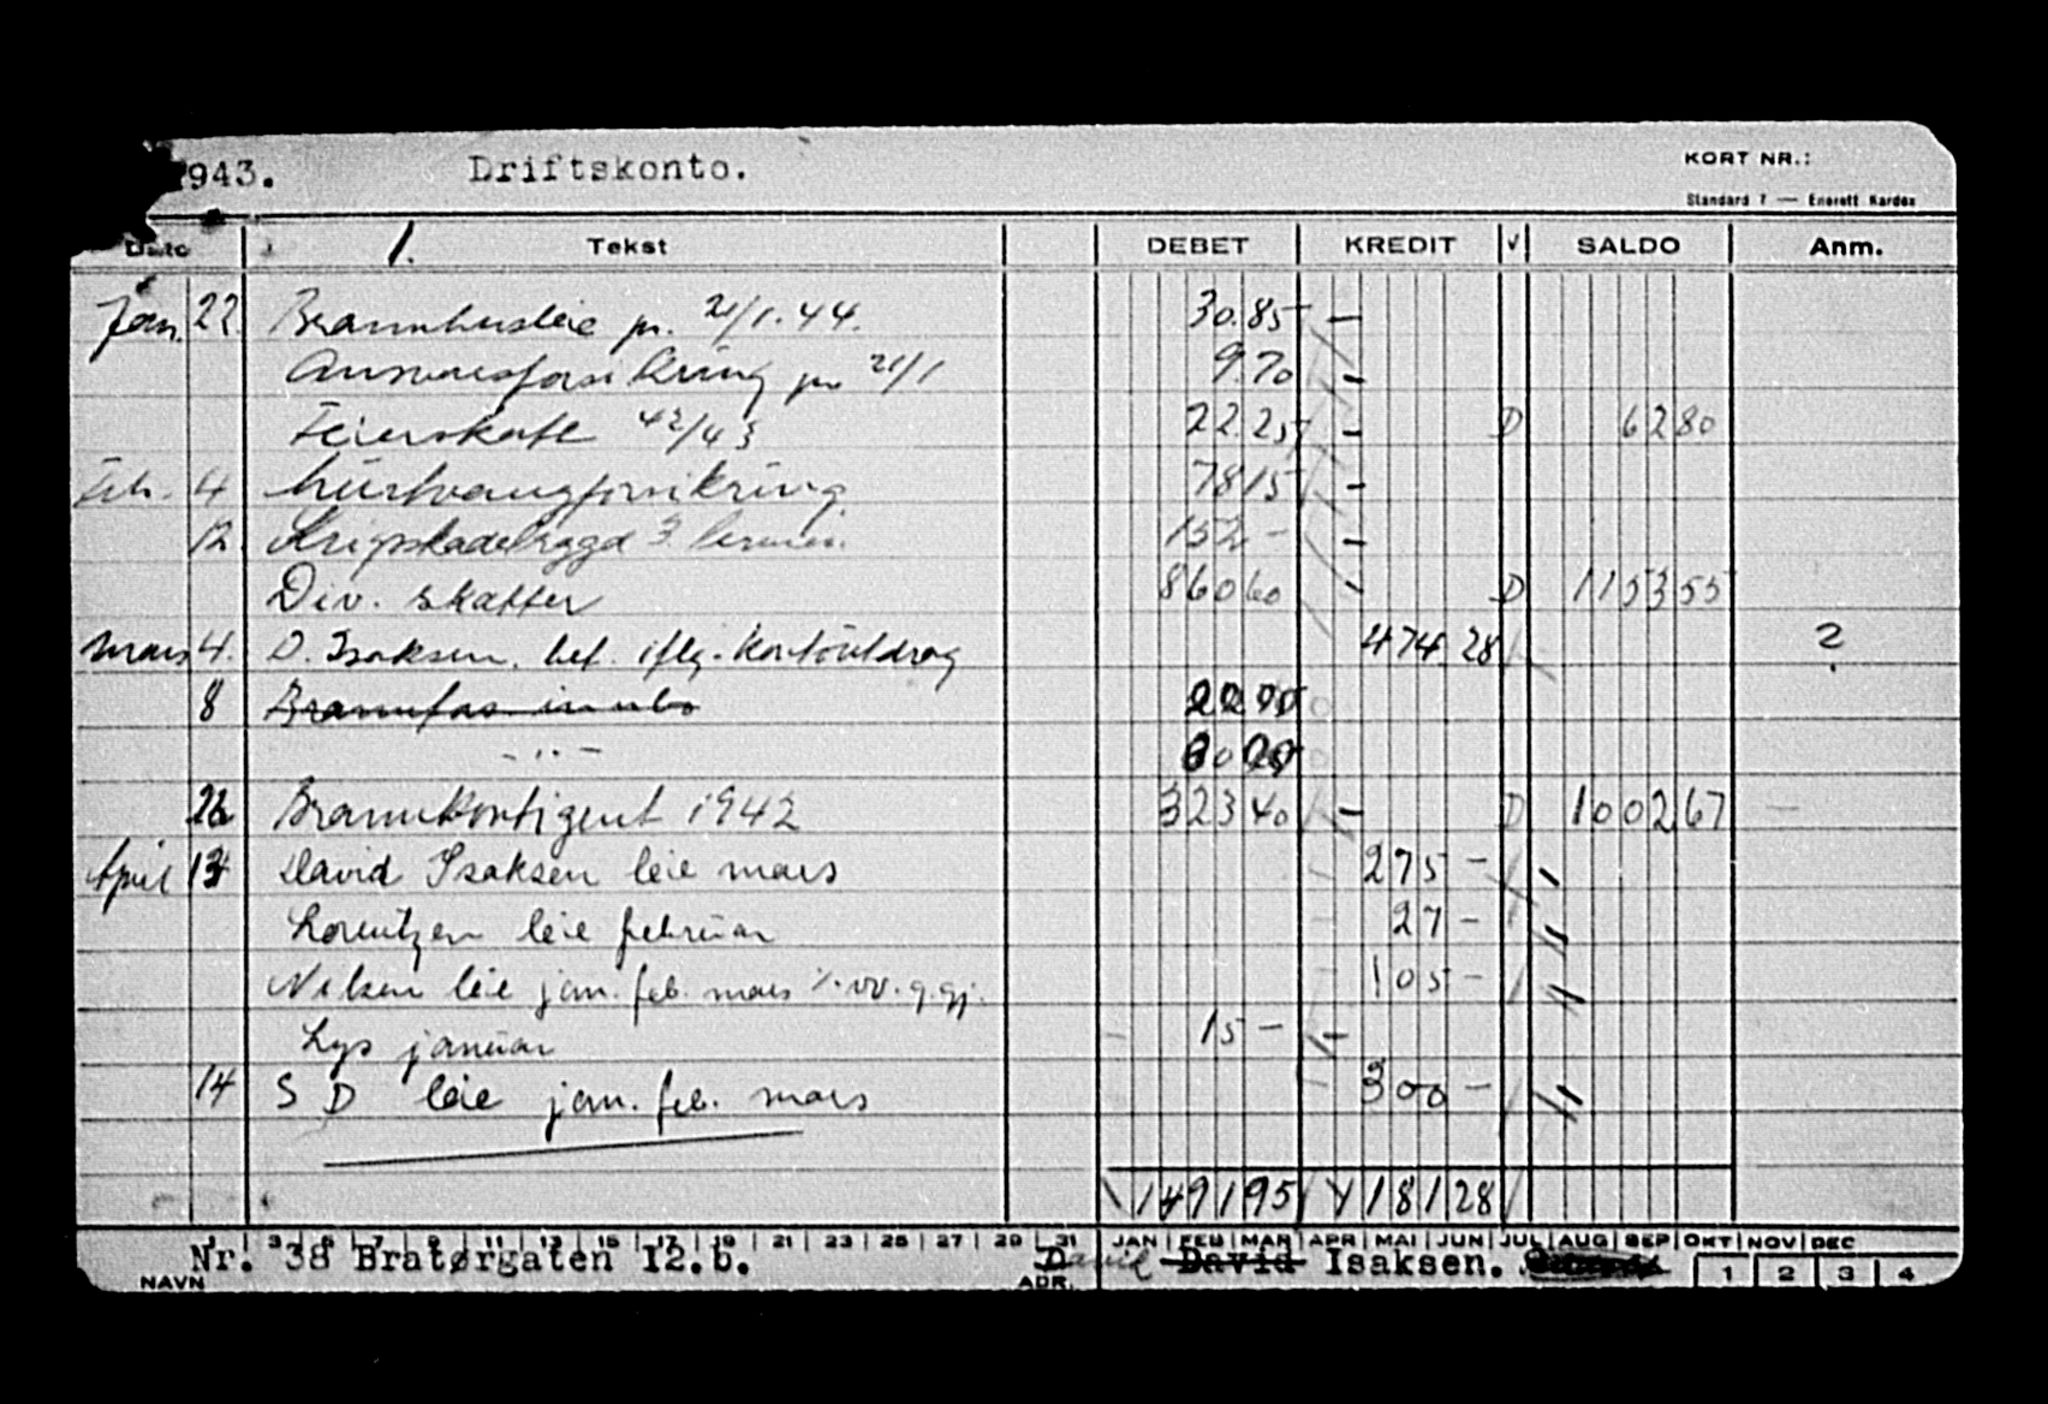 943. Driftskonto. KORT NR.:
Standard 7 — Enerett Kardex
Dato 1. Tekst DEBET KREDIT √ SALDO Anm.
Jan. 22. pr. 21/1.44. 30.85 —
Ansvarsforsikring pr 21/1 9.70 —
Feierskatt 42/43 22.25 — D 62 80
Feb. 4 78 15 —
12. 3 termin. 152 — —
Div. skatter 860 60 — D 1153 55
Mars 4. D. Isaksen. bet. iflg. kontoutdrag 474 28 ?
8 Brannfors innbo
— " —
26 Brannkontigent 1942 323 40 — D 1002 67 —
April 13 David Isaksen leie mars 275 —
Lorentzen leie februar 27 —
Nilsen leie jan. feb. mars 105 —
Lys januar 15 — —
14 S D leie jan. feb. mars 300 —
1491 95 1181 28
1 3 5 7 9 11 13 15 17 19 21 23 25 27 29 31 JAN FEB MAR APR MAI JUN JUL AUG SEP OKT NOV DEC
Nr. 38 Bratørgaten I2.b. David David Isaksen. 1 2 3 4
NAVN ADR.